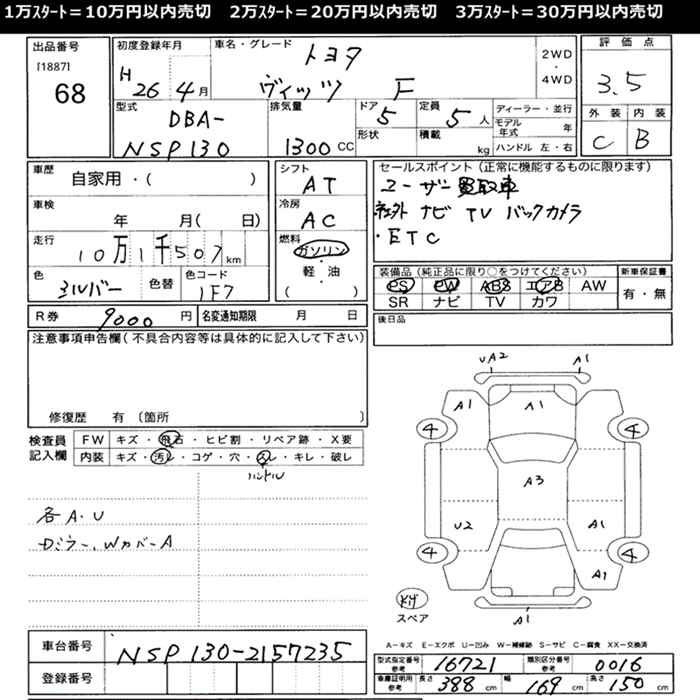 1万ｽﾀｰﾄ＝10万円以内売切　2万ｽﾀｰﾄ＝20万円以内売切　3万ｽﾀｰﾄ＝30万円以内売切
出品番号
[1887]
68
初度登録年月
H 26 年 4 月
車名・グレード
トヨタ
ヴィッツ F
2WD
・
4WD
評価点
3.5
外装 内装
C B
型式
DBA-
NSP130
排気量
1300 CC
ドア
5
形状
定員
5 人
積載
kg
ディーラー・並行
モデル年式 年
ハンドル 左・右
車歴
自家用・( )
車検
年 月( 日)
走行
10万1千507 km
色
シルバー
色替
色コード
1F7
シフト
AT
冷房
AC
燃料
ガソリン
・
軽・油
( )
セールスポイント（正常に機能するものに限ります）
ユーザー買取車
社外 ナビ TV バックカメラ
・ETC
装備品（純正品に限り○をつけてください）
PS PW ABS エアB AW
SR ナビ TV カワ
新車保証書
有・無
後日品
R券 9000 円
名変通知期限 月 日
注意事項申告欄（不具合内容等は具体的に記入して下さい）
修復歴 有（箇所 ）
検査員
記入欄
FW キズ・飛石・ヒビ割・リペア跡・X要
内装 キズ・汚レ・コゲ・穴・スレ・キレ・破レ
ハンドル
各A・U
Dミラー、WカバーA
UA2 A1
A1 A1
4 4
A3
U2 A1
4 4
A1
スペア
A1
A－キズ E－エクボ U－凹み W－補修跡 S－サビ C－腐食 XX－交換済
車台番号 NSP130-2157235
登録番号
型式指定番号 参考 16721 類別区分番号 参考 0016
車庫証明用 参考 長さ 388 cm 幅 169 cm 高さ 150 cm